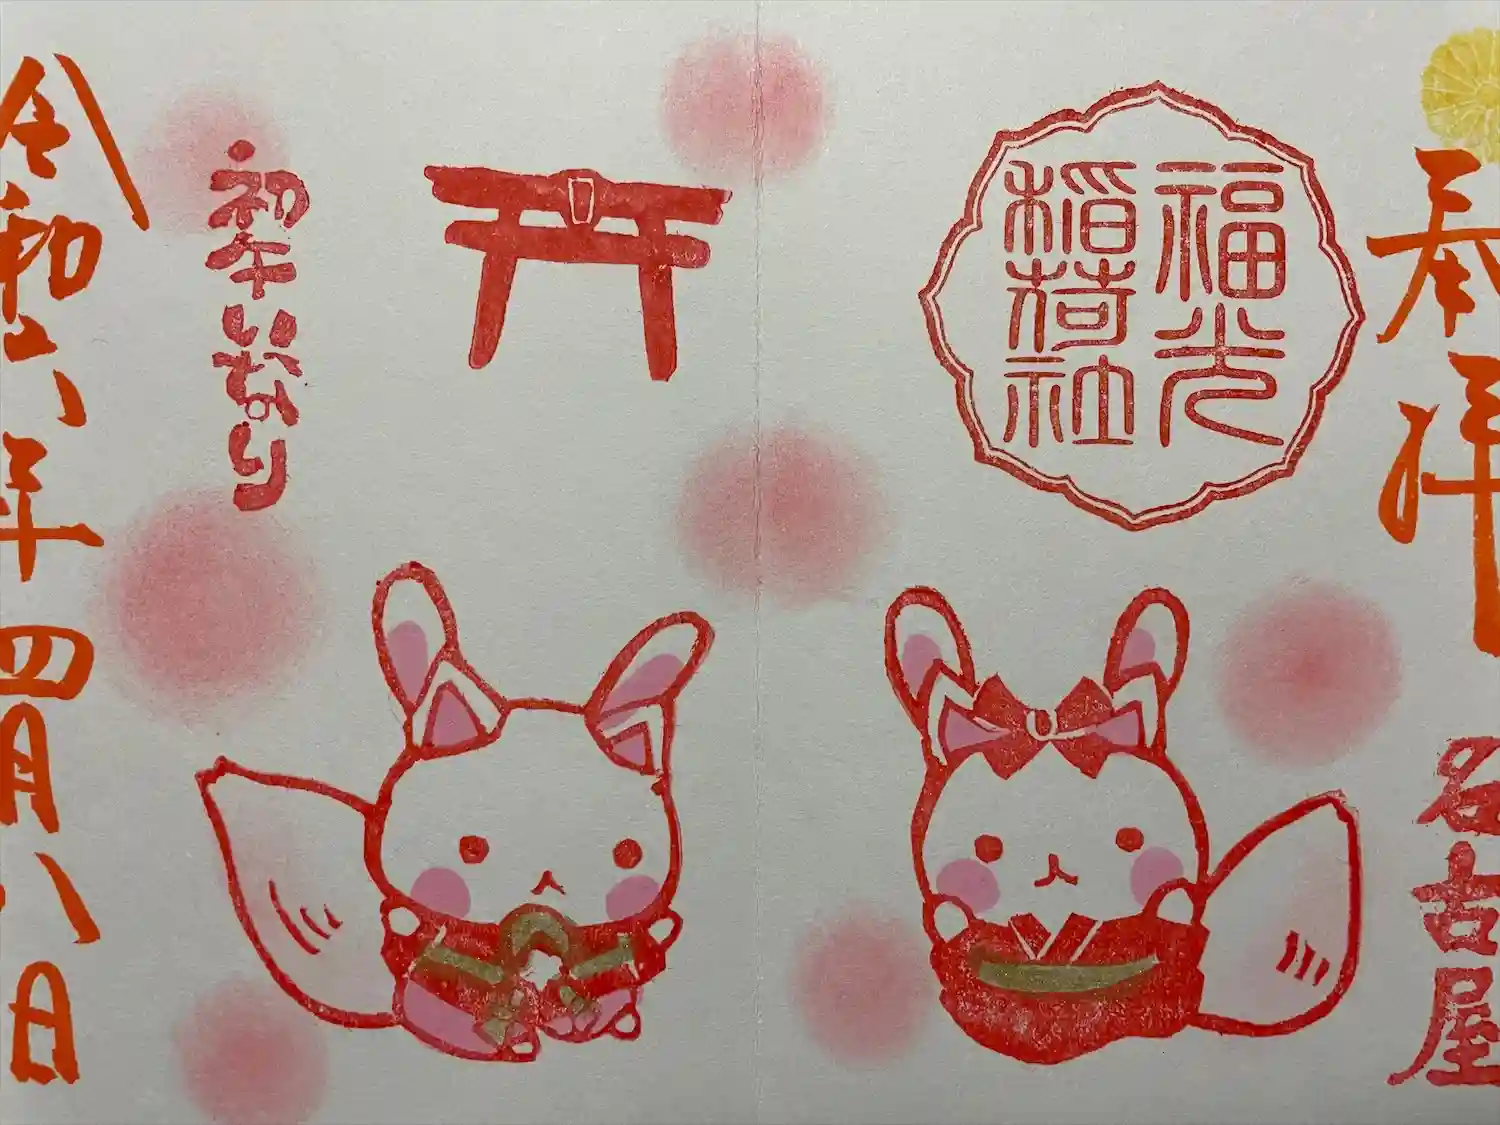 奉拝
名古屋
福光
稲荷社
初午いなり
令和六年四月八日